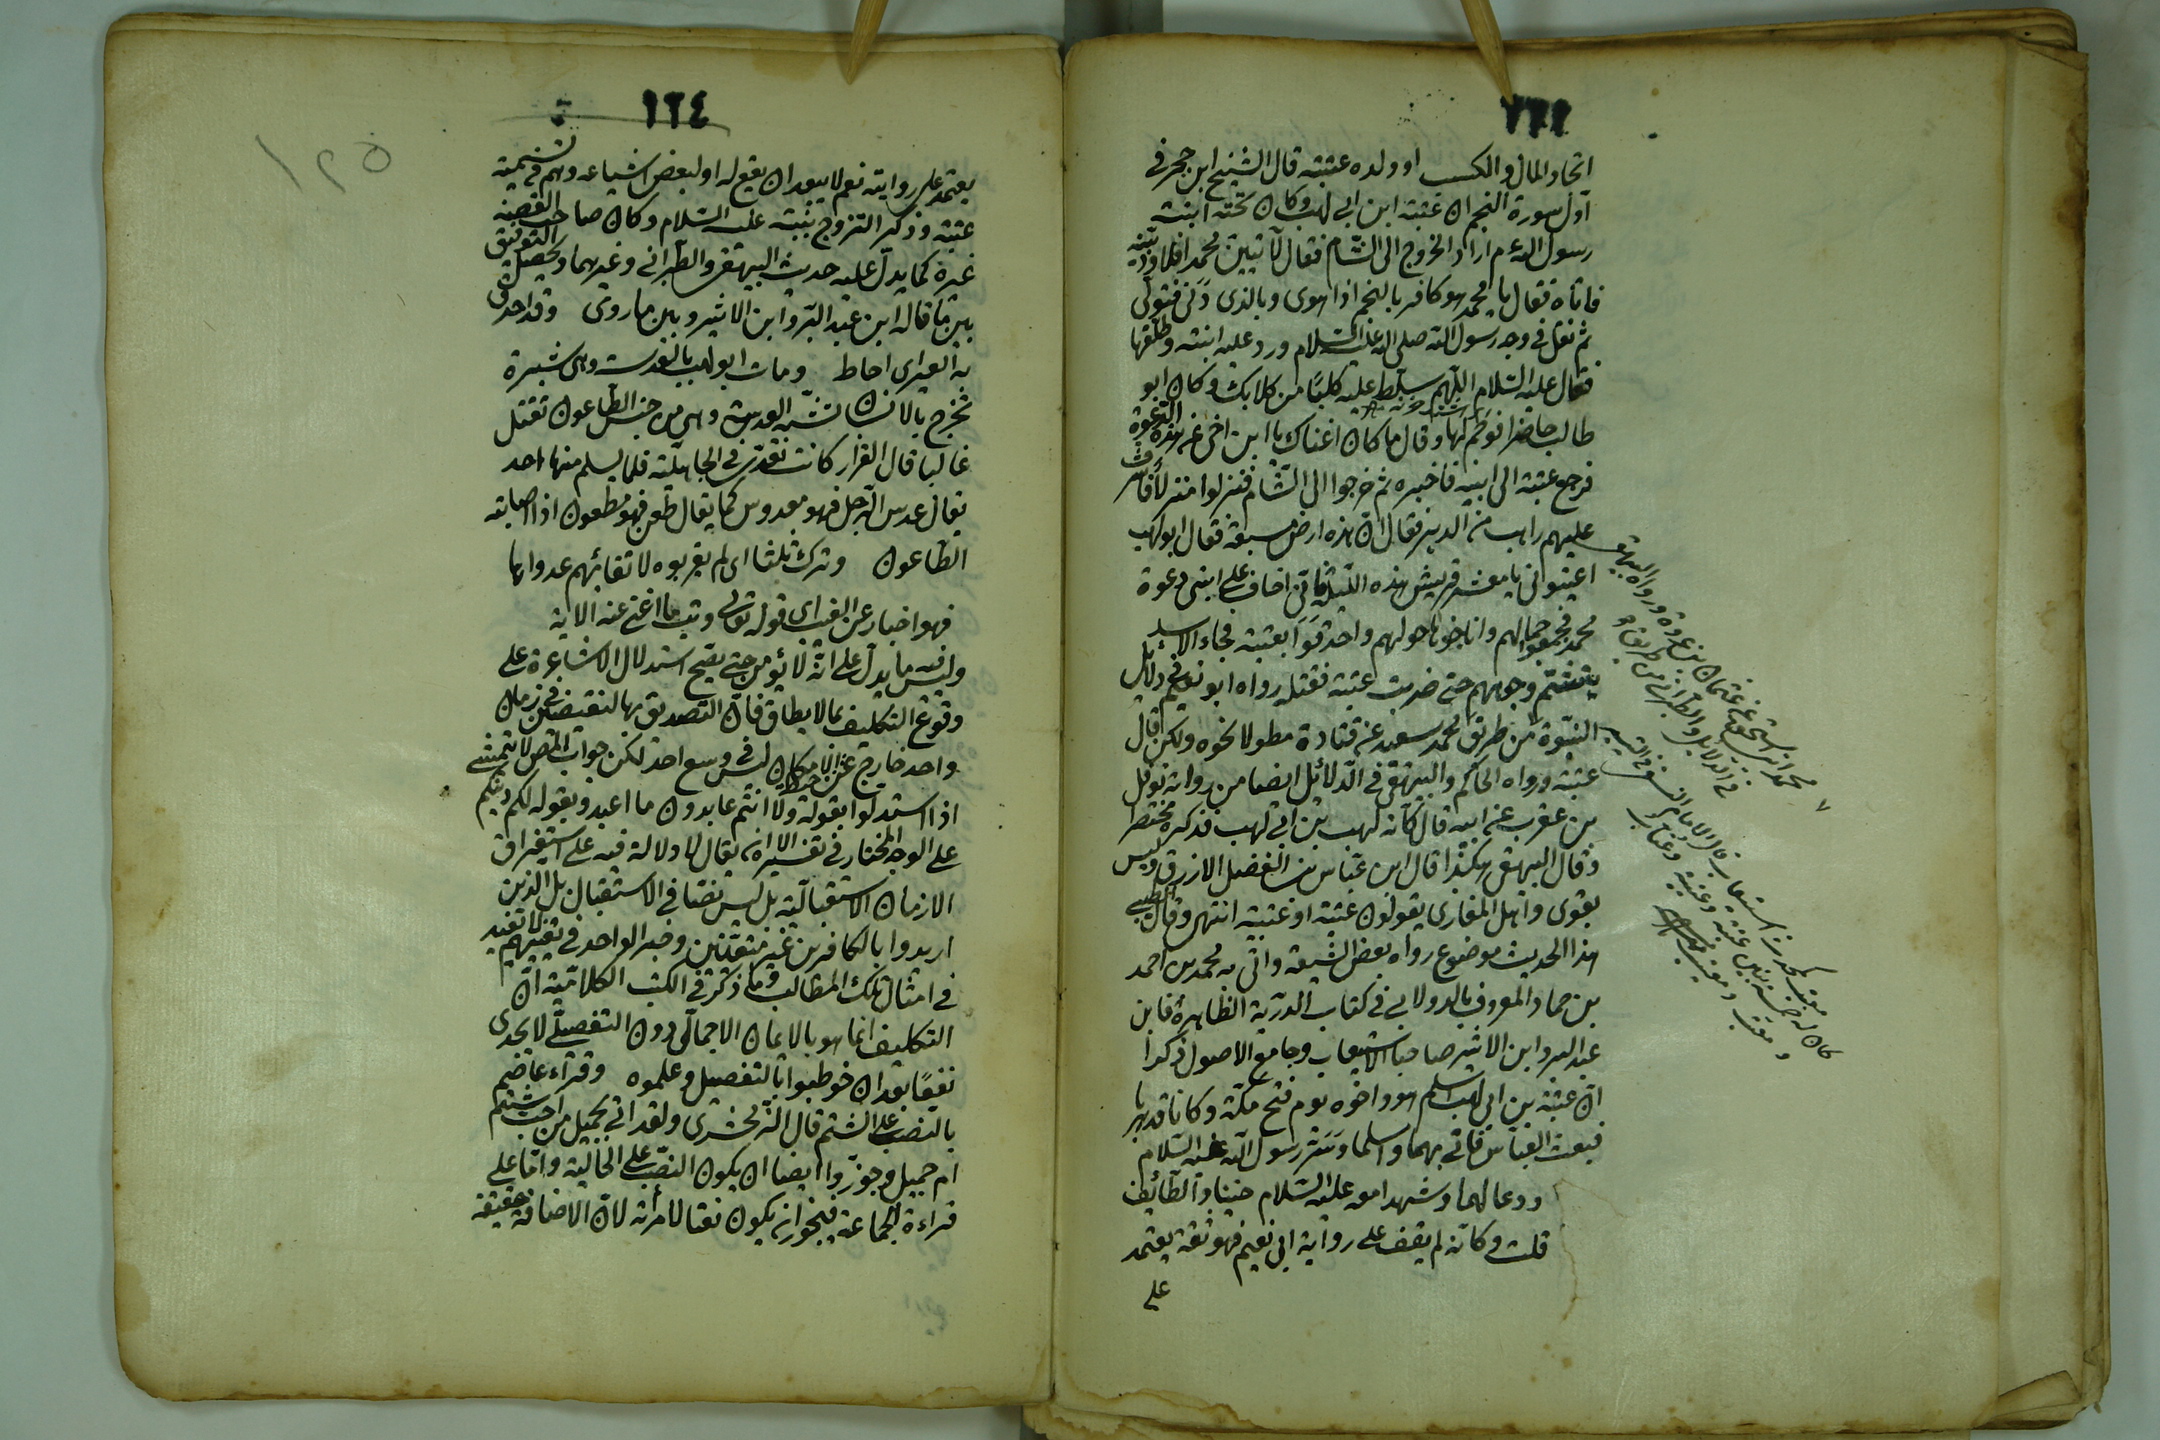 اتحاد المال والكسب او ولده عتبة قال الشيخ ابن حجر في
اول سورة النجم ان عتبة ابن ابي لهب وكان تحته ابنة
رسول الله م اراد الخروج الى الشام فقال لآتين محمدا فلاوذينه
فاتاه فقال يا محمد هو كافر بالنجم اذا هوى وبالذى دنى فتدلى
ثم تفل في وجه رسول الله صلى الله عليه السلام ورد عليه ابنته وطلقها
فقال عليه السلام اللهم سلط عليه كلبا من كلابك وكان ابو
طالب حاضرا فوجم لها وقال ما كان اغناك يا ابن اخى عن هذه الدعوة
فرجع عتبة الى ابيه فاخبره ثم خرجوا الى الشام فنزلوا منزلا فاشرف
عليهم راهب من الدير فقال ان هذه ارض مسبعة فقال ابو لهب
اعينونى يا معشر قريش هذه الليلة فانى اخاف على ابنى دعوة
محمد فجمعوا جمالهم واناخوها حولهم واحدقوا بعتبة فجاء الاسد
يتشمم وجوههم حتى ضربت عتبة فقتله رواه ابو نعيم في دلائل
النبوة من طريق محمد سعيد عن قتادة مطولا نحوه ولكن قال
عتبة ورواه الحاكم والبيهقى في الدلائل ايضا من رواية نوفل
بن عقرب عن ابيه قال كانه لهب بن ابي لهب فذكره مختصرا
وقال البيهقى هكذا قال ابن عباس بن الفضل الازرق وليس
بقوى واهل المغازى يقولون عتبة او عتيبة انتهى وقال الطيبى
هذا الحديث موضوع رواه بعض الشيعة واتى به محمد بن احمد
بن حماد المعروف بالدولابى في كتاب الذرية الطاهرة فابن
عبد البر وابن الاثير صاحبا الاستيعاب وجامع الاصول ذكرا
ان عتبة بن ابي لهب اسلم هو واخوه يوم فتح مكة وكانا قد هربا
فبعث العباس فاتى بهما واسلما وسر رسول الله عليه السلام
ودعا لهما وشهدا معه عليه السلام حنينا والطائف
قلت وكانه لم يقف على رواية ابى نعيم فهو ثقة يعتمد
على
محمد ابن اسحق عن عثمان بن عروة ورواه البيهقى
في الدلائل والطبرانى من طريق
١٢٤
١٢٥
يعتمد على روايته نعم لا يبعد ان يقع له او لبعض اشياعه وهم في تسمية
عتبة وذكر التزوج ببنته عليه السلام وكان صاحب القصة
غيره كما يدل عليه حديث البيهقى والطبرانى وغيرهما ويحصل التوفيق
بين ما قاله ابن عبد البر وابن الاثير وبين ما روى وقد احدق
به العير اى احاط ومات ابو لهب بالعدسة وهى بثيرة
تخرج بالانسان تشبه العدسة وهى من جنس الطاعون تقتل
غالبا قال الفراء كانت تعدى في الجاهلية قلما يسلم منها احد
يقال عدس الرجل فهو معدوس كما يقال طعن فهو مطعون اذا اصابته
الطاعون وترك ثلثا اى لم يقربوه لاتقائهم عدواها
فهو اخبار عن الغيب اى قوله تعالى وتب ما اغنى عنه الاية
وليس فيه ما يدل على انه لا يؤمن حتى يصح استدلال الاشاعرة على
وقوع التكليف بما لا يطاق فان التصديق بها للنقيضين في زمان
واحد خارج عن الامكان ليس في وسع احد لكن جواب المص لا يتمشى
اذا استدلوا بقوله ولا انتم عابدون ما اعبد وبقوله لكم دينكم
على الوجه المختار في تفسيره الا ان يقال لا دلالة فيه على استغراق
الازمان الاستقبالية بل ليس نصا في الاستقبال بل الذين
اريدوا بالكافرين غير متعينين وخبر الواحد في تعيينهم لا تفيد
في امثال تلك المطالب وما ذكر في الكتب الكلامية ان
التكليف انما هو بالايمان الاجمالى دون التفصيلى لا يجدى
نفعا بعد ان خوطبوا بالتفصيل وعلموه وقراء عاصم
بالنصب على الشتم قال الزمخشرى ولقد اتى بجميل من احب شتم
ام جميل وجوزوا ايضا ان يكون النصب على الحالية واما على
قراءة الجماعة فيجوز ان يكون نعتا لامرأته لان الاضافة حقيقة